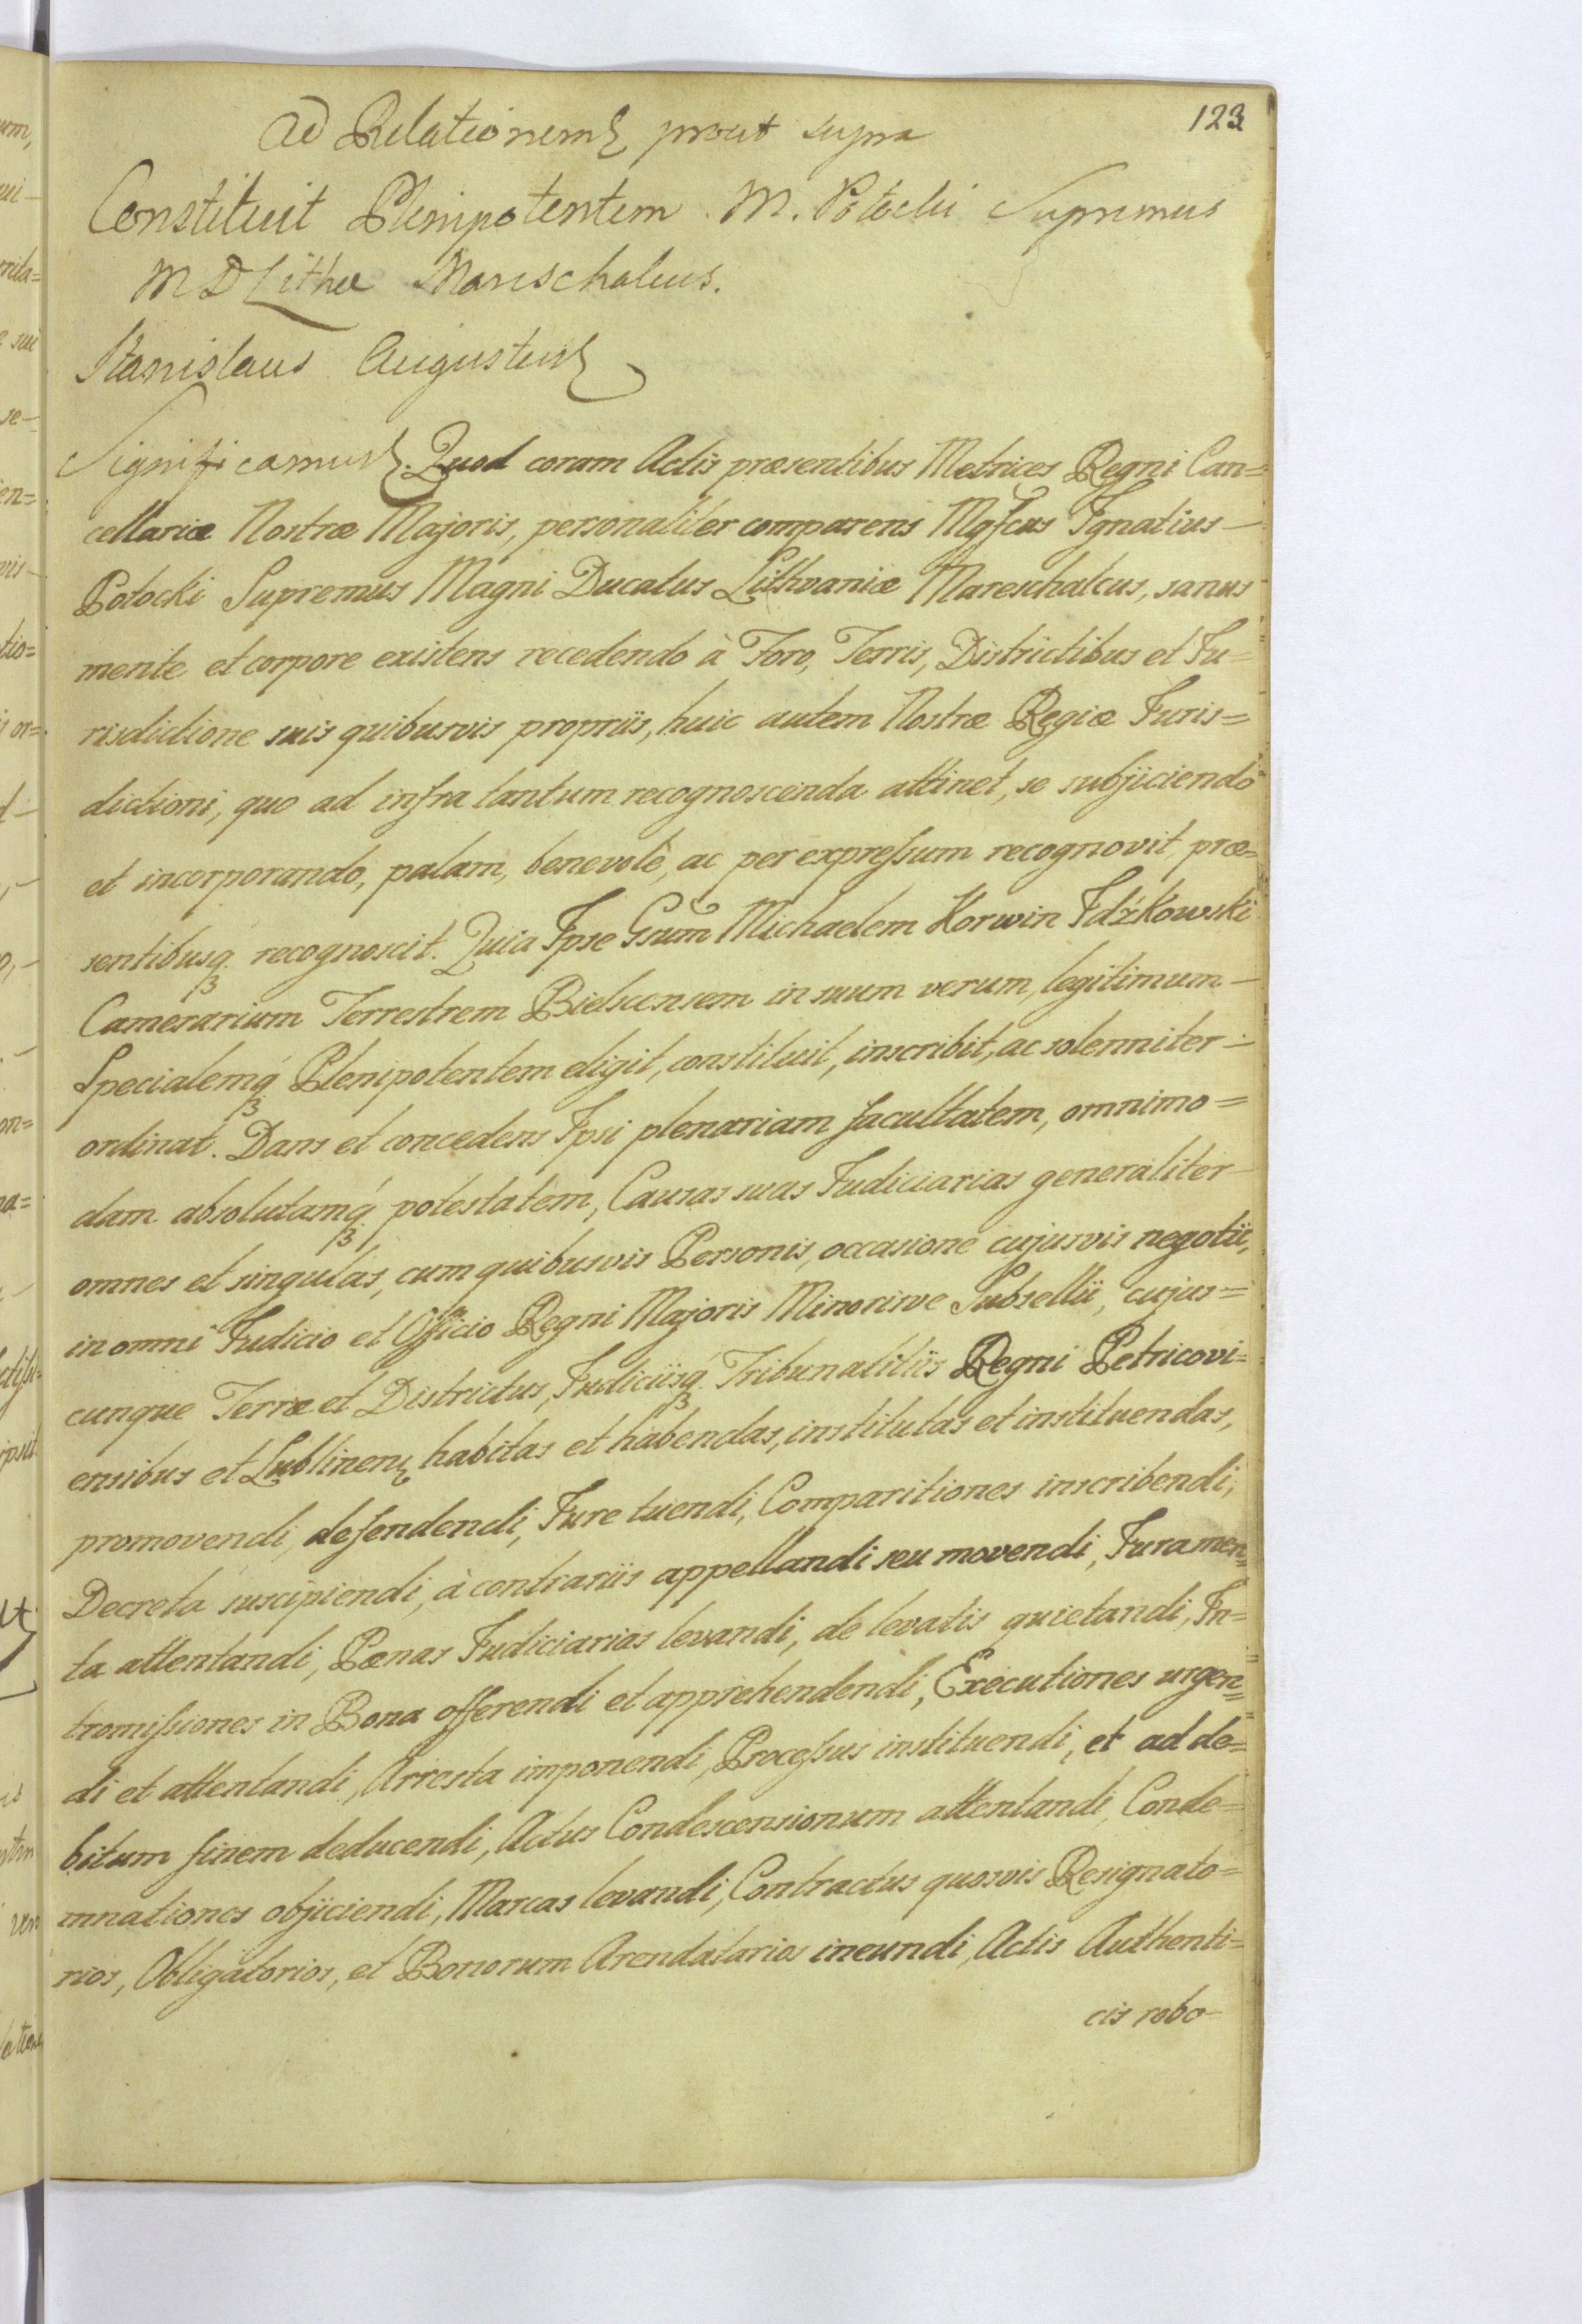 123
Ad Relationem prout supra
Constituit Plenipotentem M. Potocki Supremus
M D Lithæ Marischalcus.
Stanislaus Augustus
Significamus. Quod coram Actis præsentibus Metrices Regni Can=
cellariæ Nostræ Majoris, personaliter comparens Mgfcus Ignatius
Potocki Supremus Magni Ducatus Lithvaniæ Mareschalcus, sanus
mente et corpore existens recedendo à Foro, Terris, Districtibus et Ju=
risdictione suis quibusvis propriis, huic autem Nostræ Regiæ Juris=
dictioni, quo ad infra tantum recognoscenda attinet, se subjiciendo
et incorporando, palam, benevolè, ac per expressum recognovit, præ=
sentibusq recognoscit. Quia Ipse Gsum Michaelem Korwin Idźkowski
Camerarium Terrestrem Bielscensem in suum verum, legitimum
Specialemq Plenipotentem eligit, constituit, inscribit, ac solenniter
ordinat. Dans et concedens Ipsi plenariam facultatem, omnimo=
dam absolutamq potestatem, Causas suas Judiciarias generaliter
omnes et singulas, cum quibusvis Personis, occasione cujusvis negotii,
in omni Judicio et Officio Regni Majoris Minorisve Subsellii, cujus=
cunque Terræ et Districtus, Judiciisq Tribunalitiis Regni Petricovi=
ensibus et Lublinen habitas et habendas, institutas et instituendas,
promovendi, defendendi, Jure tuendi, Comparitiones inscribendi,
Decreta suscipiendi, à contrariis appellandi seu movendi, Juramen=
ta attentandi, Pænas Judiciarias levandi, de levatis quietandi, In=
tromissiones in Bona offerendi et apprehendendi, Executiones urgen=
di et attentandi, Arresta imponendi, Processus instituendi, et ad de=
bitum finem deducendi, Actus Condescensionum attentandi, Conde=
mnationes objiciendi, Marcas levandi, Contractus quosvis Resignato=
rios, Obligatorios, et Bonorum Arendatarios ineundi, Actis Authenti=
cis robo-